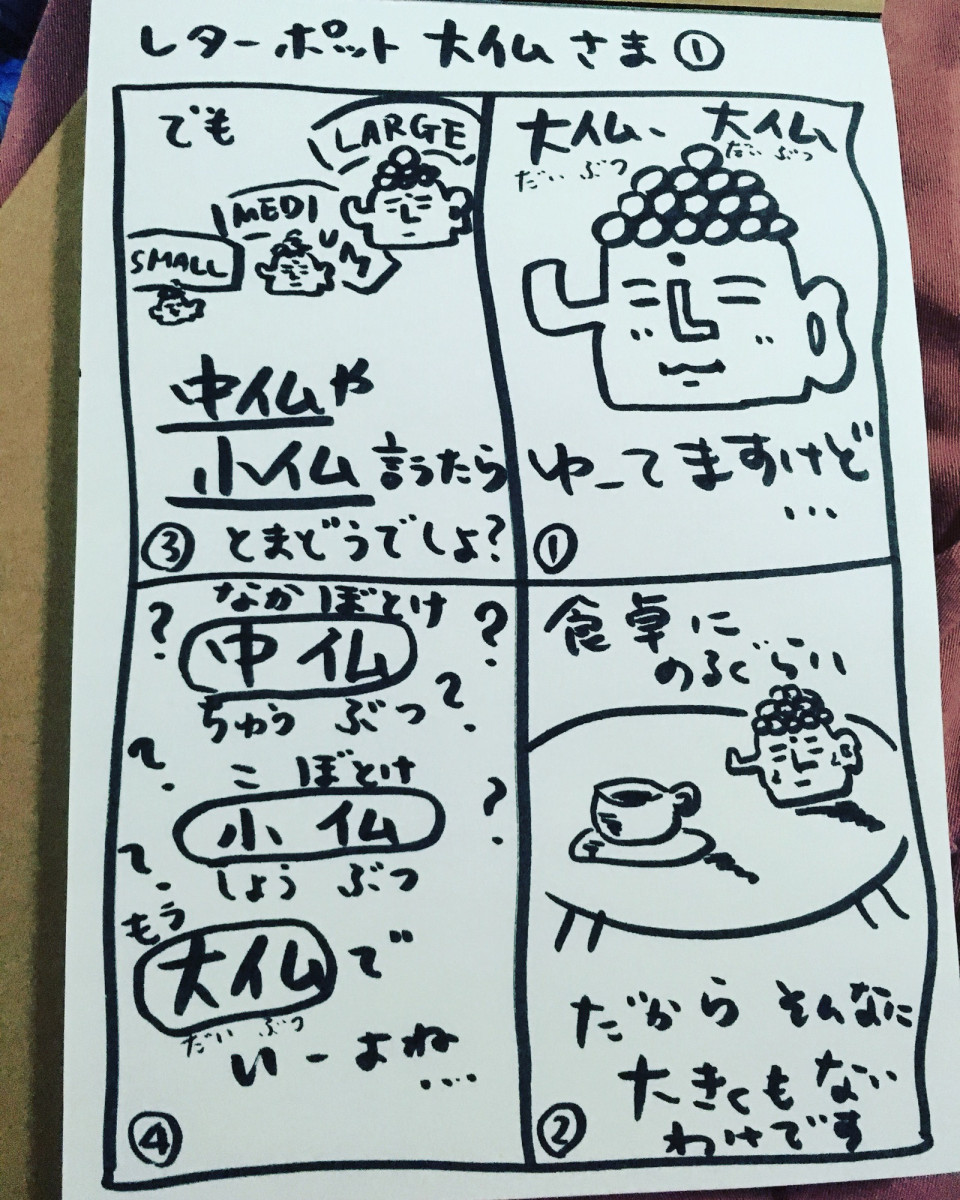 レターポット 大仏さま①
大仏、大仏
だいぶつ だいぶつ
ゆってますけど
…
①
食卓に
のるぐらい
だから そんなに
大きくも ない
わけです
②
でも
LARGE
MEDIUM
SMALL
中仏や
小仏言うたら
とまどうでしょ?
③
なか ぼとけ
? 中仏 ?
ちゅう ぶつ ?
?
こ ぼとけ
小仏 ?
しょう ぶつ
?
もう
大仏で
だい ぶつ
いーよね
…
④